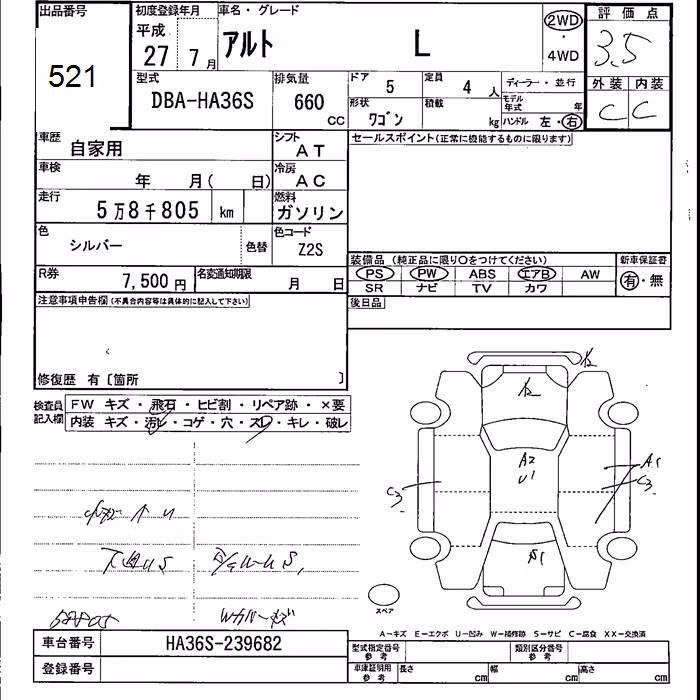 出品番号 初度登録年月 車名・グレード 評価点
521 平成 27 7月 アルト L 2WD ・ 4WD 3.5
型式 排気量 ドア 5 定員 4人 ディーラー・並行 外装 内装
DBA-HA36S 660 CC 形状 ワゴン 積載 kg モデル年式 年 ハンドル 左・右 C C
車歴 自家用 シフト AT セールスポイント(正常に機能するものに限ります)
車検 年 月( 日) 冷房 AC
走行 5万8千805 km 燃料 ガソリン
色 シルバー 色替 色コード Z2S
装備品 (純正品に限り○をつけてください) 新車保証書
R券 7,500円 名変通知期限 月 日 PS PW ABS エアB AW 有・無
SR ナビ TV カワ
注意事項申告欄(不具合内容等は具体的に記入して下さい) 後日品
修復歴 有〔箇所 〕
検査員記入欄 FW キズ・飛石・ヒビ割・リペア跡・×要
内装 キズ・汚レ・コゲ・穴・スレ・キレ・破レ
A2
U1
A1
C3
C3
A1
58805
Wカバーキズ
スペア
A−キズ E−エクボ U−凹み W−補修跡 S−サビ C−腐食 XX−交換済
車台番号 HA36S-239682 型式指定番号 参考 類別区分番号 参考
登録番号 車庫証明用 参考 長さ cm 幅 cm 高さ cm